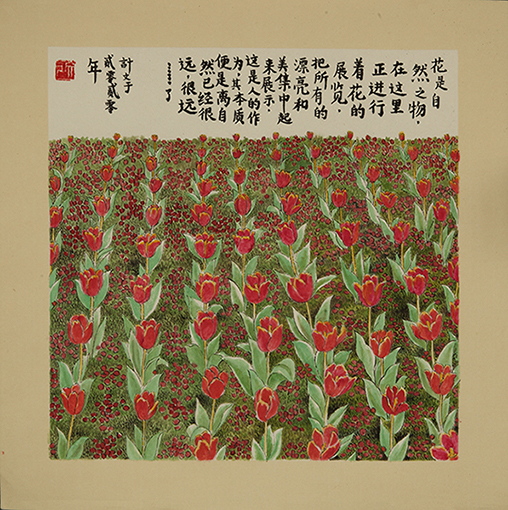 花是自
然之物，
在这里
正进行
着花的
展览，
把所有的
漂亮和
美集中起
来展示，
这是人的作
为，其本质
便是离自
然已经很
远，很远
……了
计文于
贰零贰零
年